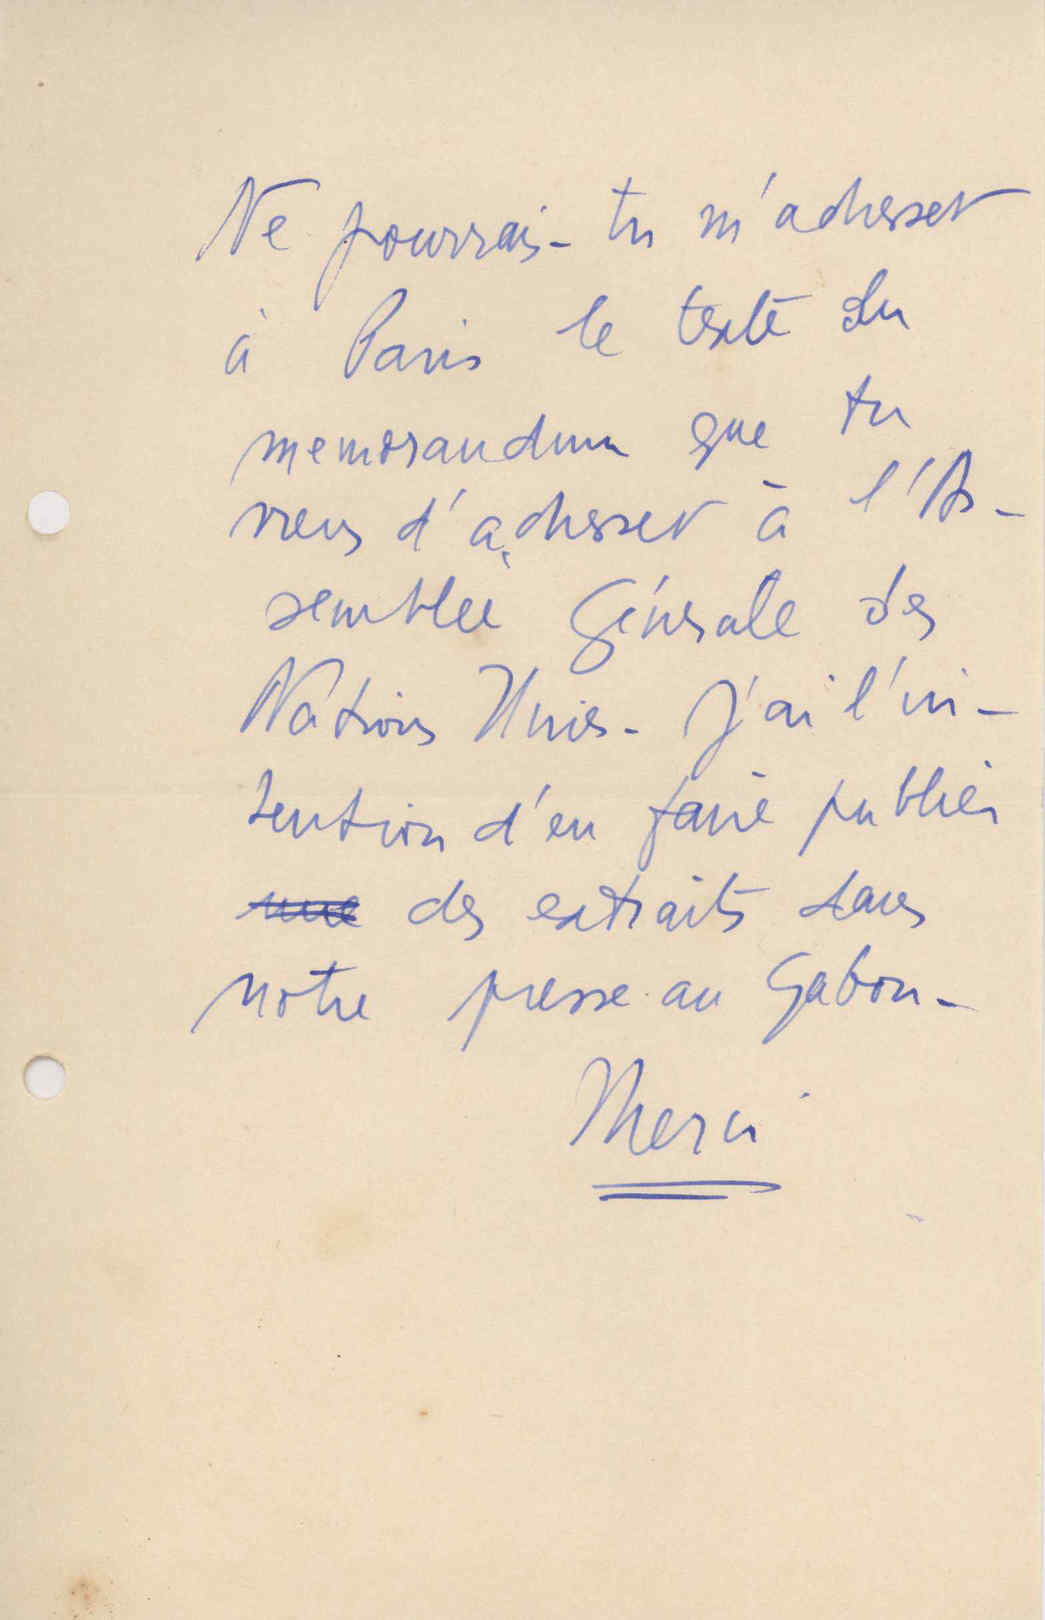 Ne pourrais-tu m'adresser
à Paris le texte du
memorandum que tu
viens d'adresser à l'As-
semblée Générale des
Nations Unies - J'ai l'in-
tention d'en faire publier
une des extraits dans
notre presse au Gabon -
Merci